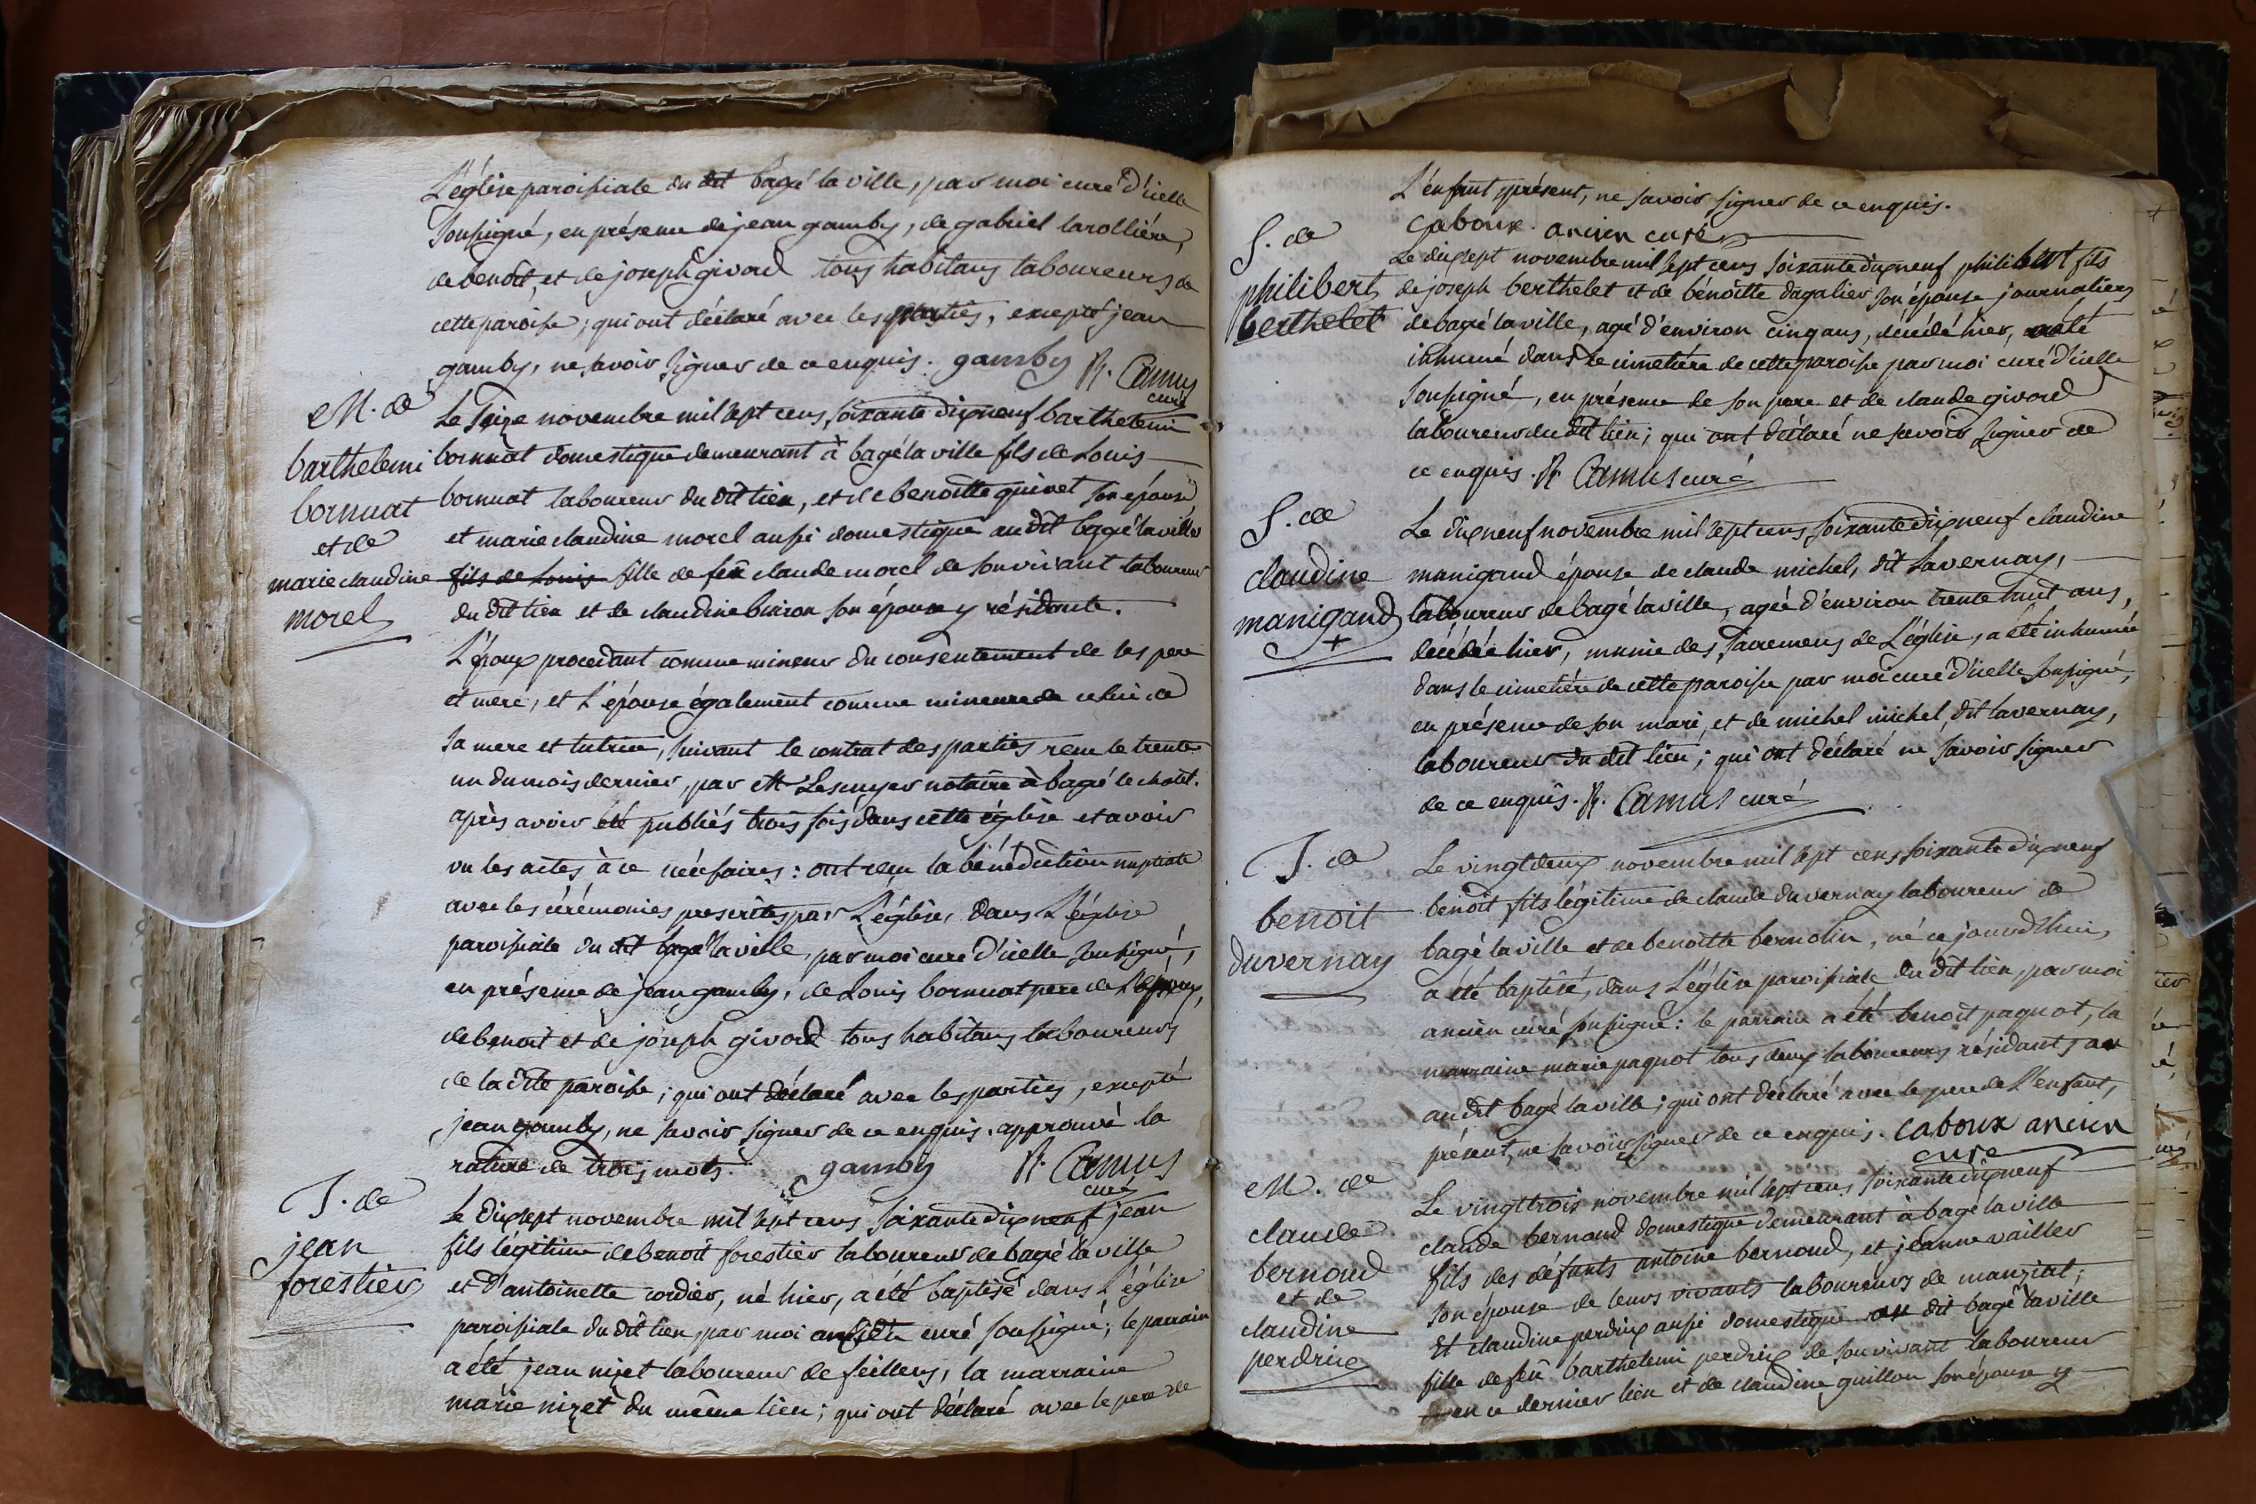 L'église paroissiale du dit bagé la ville, par moi curé d'icelle
soussigné, en présence de jean gamby, de gabriel larollière,
de benoit, et de joseph givord tous habitans laboureurs de
cette paroisse; qui ont déclaré avec les parties, excepté jean
gamby, ne savoir signer de ce enquis. gamby R. Camus
curé
M. de
barthelemi
bornuat
et de
marie claudine
morel
Le seize novembre mil sept cens soixante dix neuf barthelemi
bornuat domestique demeurant à bagé la ville fils de Louis
bornuat laboureur du dit lieu, et de benoitte quinet son épouse,
et marie claudine morel aussi domestique au dit bagé la ville
fils de Louis fille de feû claude morel de son vivant laboureur
du dit lieu et de claudine buiron son épouse y résidante.
L'époux procedant comme mineur du consentement de ses pere
et mere, et L'épouse également comme mineure de celui de
sa mere et tutrice, suivant le contrat des parties reçu le trente
un du mois dernier, par Me Lescuyer notaire à bagé le chatel.
après avoir été publiés trois fois dans cette église et avoir
vu les actes à ce nécessaires: ont reçu la bénédiction nuptiale
avec les cérémonies prescrites par L'église, dans L'église
paroissiale du dit bagé la ville, par moi curé d'icelle soussigné,
en présence de jean gamby, de Louis bornuat pere de L'époux,
de benoit et de joseph givord tous habitans laboureurs
de la dite paroisse; qui ont déclaré avec les parties, excepté
jean gamby, ne savoir signer de ce enquis. approuvé la
rature de trois mots. gamby R. Camus
curé
J. de
jean
forestier
Le dix sept novembre mil sept cens soixante dix neuf jean
fils légitime de benoit forestier laboureur de bagé la ville
et d'antoinette cordier, né hier, a été baptisé dans L'église
paroissiale du dit lieu par moi ancien curé soussigné; le parrain
a été jean nizet laboureur de feillens, la marraine
marie nizet du même lieu; qui ont déclaré avec le pere de
L'enfant présent, ne savoir signer de ce enquis.
caboux ancien curé
S. de
philibert
berthelet
Le dix sept novembre mil sept cens soixante dix neuf philibert fils
de joseph berthelet et de bénoitte dagalier son épouse journaliers
de bagé la ville, agé d'environ cinq ans, décédé hier, a été
inhumé dans le cimetière de cette paroisse par moi curé d'icelle
soussigné, en présence de son pere et de claude givord
laboureur du dit lieu; qui ont déclaré ne savoir signer de
ce enquis. R. Camus curé
S. de
claudine
manigand
Le dix neuf novembre mil sept cens soixante dix neuf claudine
manigand épouse de claude michel, dit Lavernay,
laboureur de bagé la ville, agée d'environ trente huit ans,
décédée hier, munie des sacremens de L'église, a été inhumée
dans le cimetière de cette paroisse par moi curé d'icelle soussigné,
en présence de son mari, et de michel michel, dit lavernay,
laboureur du dit lieu; qui ont déclaré ne savoir signer
de ce enquis. R. Camus curé
J. de
benoit
duvernay
Le vingt deux novembre mil sept cens soixante dix neuf
benoit fils légitime de claude duvernay laboureur de
bagé la ville et de benoitte bernolin, né ce jourd'hui,
a été baptisé, dans L'église paroissiale du dit lieu, par moi
ancien curé soussigné: le parrain a été benoit paquot, la
marraine marie paquot tous deux laboureurs résidants au
au dit bagé la ville; qui ont déclaré avec le pere de L'enfant,
présent, ne savoir signer de ce enquis. caboux ancien
curé
M. de
claude
bernoud
et de
claudine
perdrix
Le vingt trois novembre mil sept cens soixante dix neuf
claude bernoud domestique demeurant à bagé la ville
fils des défunts antoine bernoud, et jeanne vailler
son épouse de leurs vivants laboureurs de manziat;
Et claudine perdrix aussi domestique au dit bagé la ville
fille de feû barthelemi perdrix de son vivant laboureur
en ce dernier lieu et de claudine guillon son épouse y